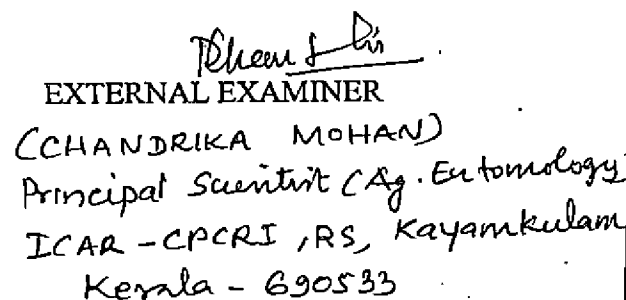 EXTERNAL EXAMINER
(CHANDRIKA MOHAN)
Principal Scientist (Ag. Entomology)
ICAR - CPCRI, RS, Kayamkulam
Kerala - 690533